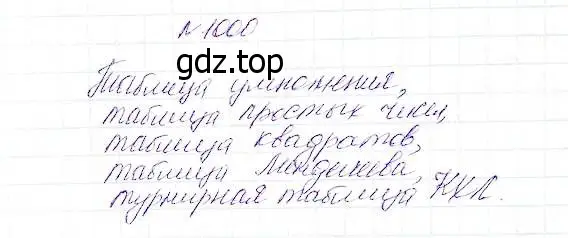 №1000
gdz.top
Таблица умножения,
таблица простых чисел,
таблица квадратов,
таблица Менделеева,
турнирная таблица КХЛ.